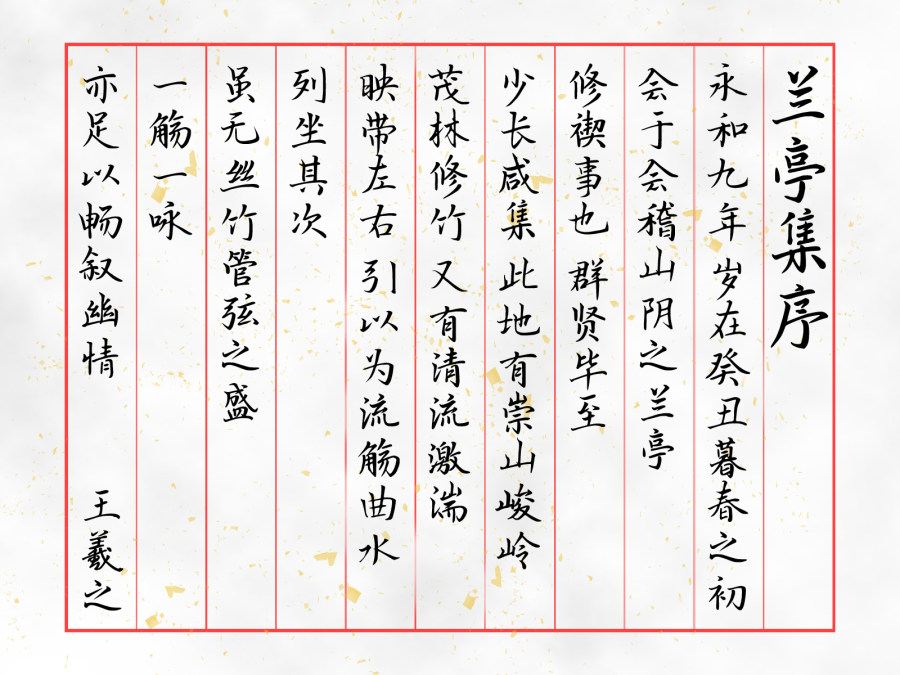 兰亭集序
永和九年 岁在癸丑暮春之初
会于会稽山阴之兰亭
修禊事也 群贤毕至
少长咸集 此地有崇山峻岭
茂林修竹 又有清流激湍
映带左右 引以为流觞曲水
列坐其次
虽无丝竹管弦之盛
一觞一咏
亦足以畅叙幽情
王羲之